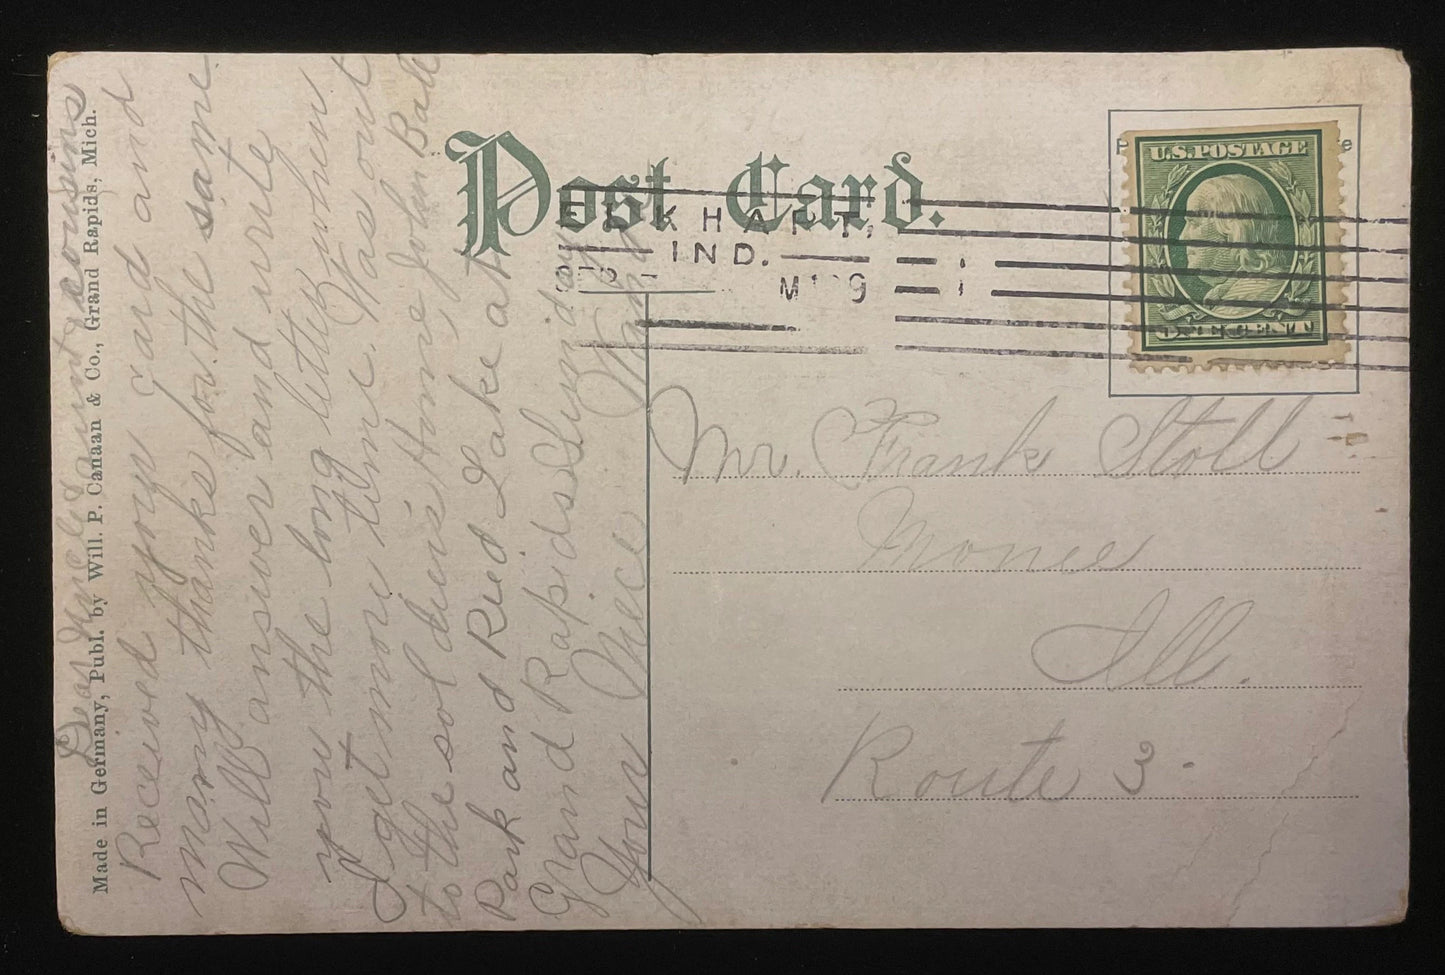 Made in Germany, Publ. by Will. P. Canaan & Co., Grand Rapids, Mich.
Dear Uncle Aunt & cousins
Received your card and
many thanks for the same
Will answer and write
you the long letter when
I get more time. Was out
to the soldiers Home, John Ball
Park and Ried Lake at
Grand Rapids Sunday
Your Niece
Post Card.
ELKHART,
IND.
U.S.POSTAGE
ONE CENT
Mr. Frank Stoll
Monee
Ill.
Route 3.